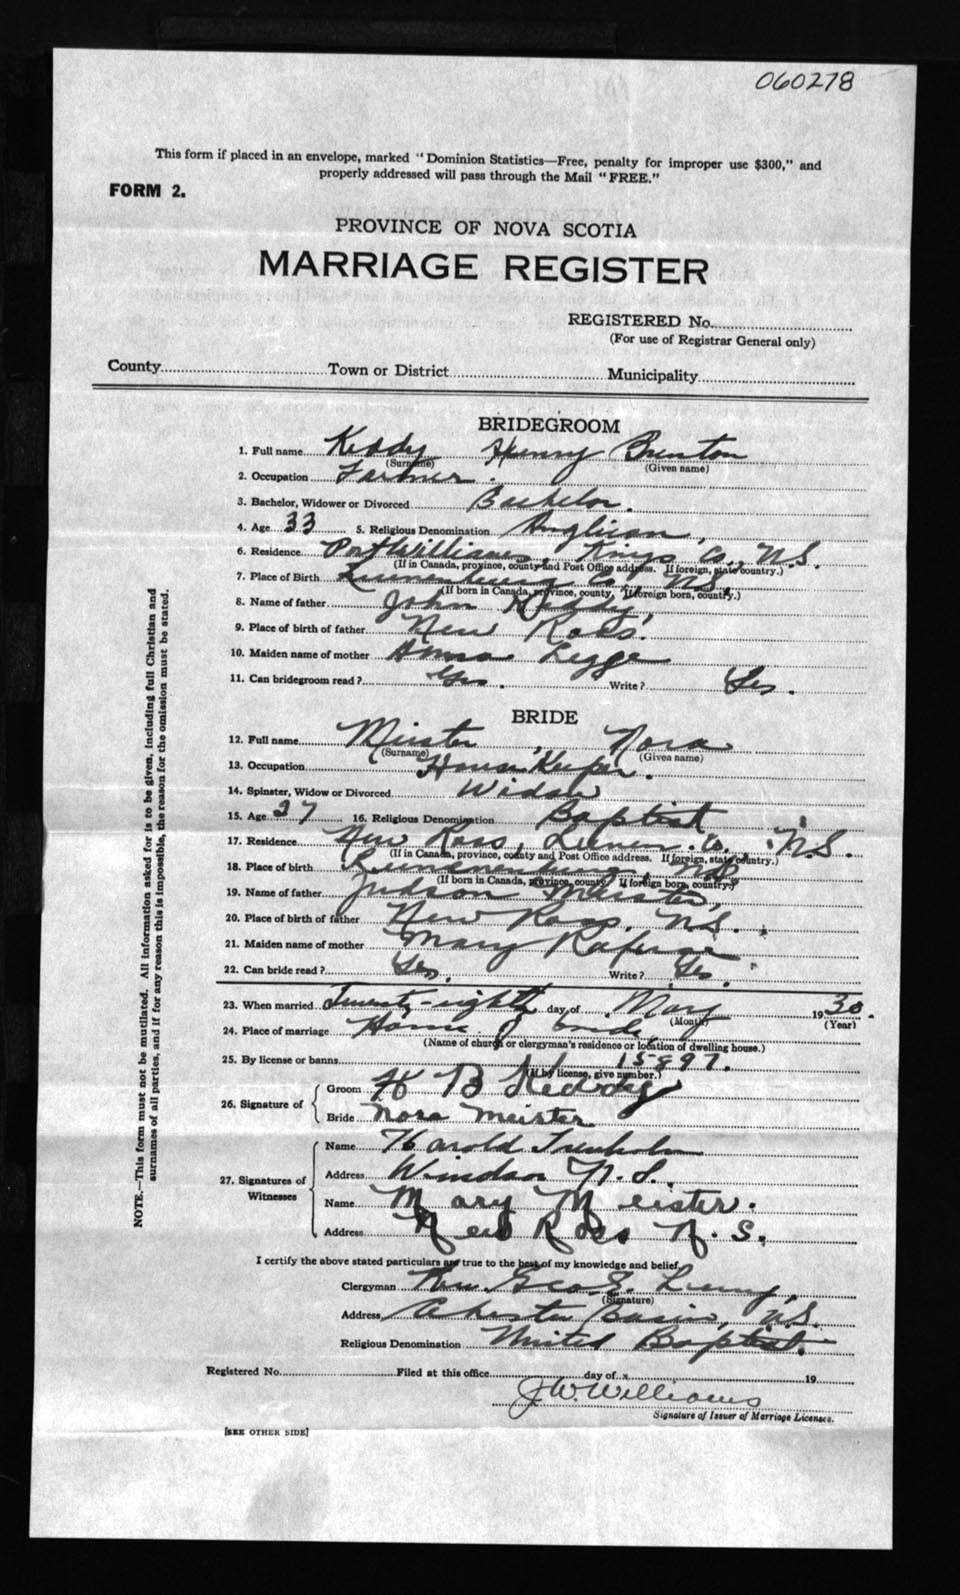 060278
This form if placed in an envelope, marked "Dominion Statistics—Free, penalty for improper use $300," and
properly addressed will pass through the Mail "FREE."
FORM 2.
PROVINCE OF NOVA SCOTIA
MARRIAGE REGISTER
REGISTERED No.
(For use of Registrar General only)
County Town or District Municipality
BRIDEGROOM
1. Full name Keddy Henry Brenton
(Surname) (Given name)
2. Occupation Farmer.
3. Bachelor, Widower or Divorced Bachelor.
4. Age 33 5. Religious Denomination Anglican,
6. Residence Port Williams, Kings Co., N.S.
(If in Canada, province, county and Post Office address. If foreign, state country.)
7. Place of Birth Lunenburg Co., N.S.
(If born in Canada, province, county, If foreign born, country.)
8. Name of father John Keddy,
9. Place of birth of father New Ross.
10. Maiden name of mother Anna Legge
11. Can bridegroom read? Yes. Write? Yes.
BRIDE
12. Full name Meister, Nora
(Surname) (Given name)
13. Occupation House Keeper.
14. Spinster, Widow or Divorced Widow
15. Age 27 16. Religious Denomination Baptist
17. Residence New Ross, Lunen. Co. N.S.
(If in Canada, province, county and Post Office address. If foreign, state country.)
18. Place of birth Lunenburg, N.S.
(If born in Canada, province, county. If foreign born, country.)
19. Name of father Judson Meister,
20. Place of birth of father New Ross, N.S.
21. Maiden name of mother Mary
22. Can bride read? Yes. Write? Yes.
23. When married Twenty-eighth day of May 1930.
(Month) (Year)
24. Place of marriage Home of bride
(Name of church or clergyman's residence or location of dwelling house.)
25. By license or banns 15897.
(If by license, give number.)
26. Signature of
Groom H B Keddy
Bride Nora Meister
27. Signatures of Witnesses
Name Harold Trenholm
Address Windsor N.S.
Name Mary Meister.
Address New Ross N.S.
I certify the above stated particulars are true to the best of my knowledge and belief.
Clergyman Rev. Geo. E.
(Signature)
Address Chester Basin, N.S.
Religious Denomination United Baptist.
Registered No. Filed at this office day of x 19
J.W. Williams
Signature of Issuer of Marriage Licenses.
[SEE OTHER SIDE]
NOTE.—This form must not be mutilated. All information asked for is to be given, including full Christian and
surnames of all parties, and if for any reason this is impossible, the reason for the omission must be stated.